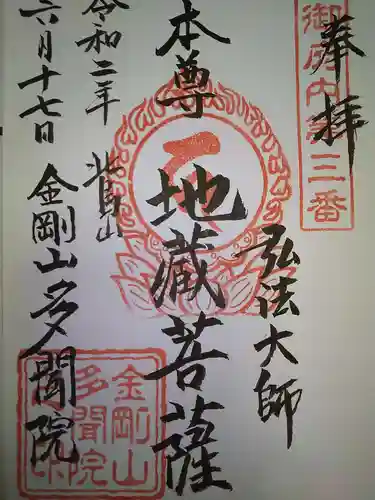 奉拝
御府内第三番
弘法大師
本尊
地蔵菩薩
令和二年
六月十七日
北烏山
金剛山多聞院
金剛山
多聞院